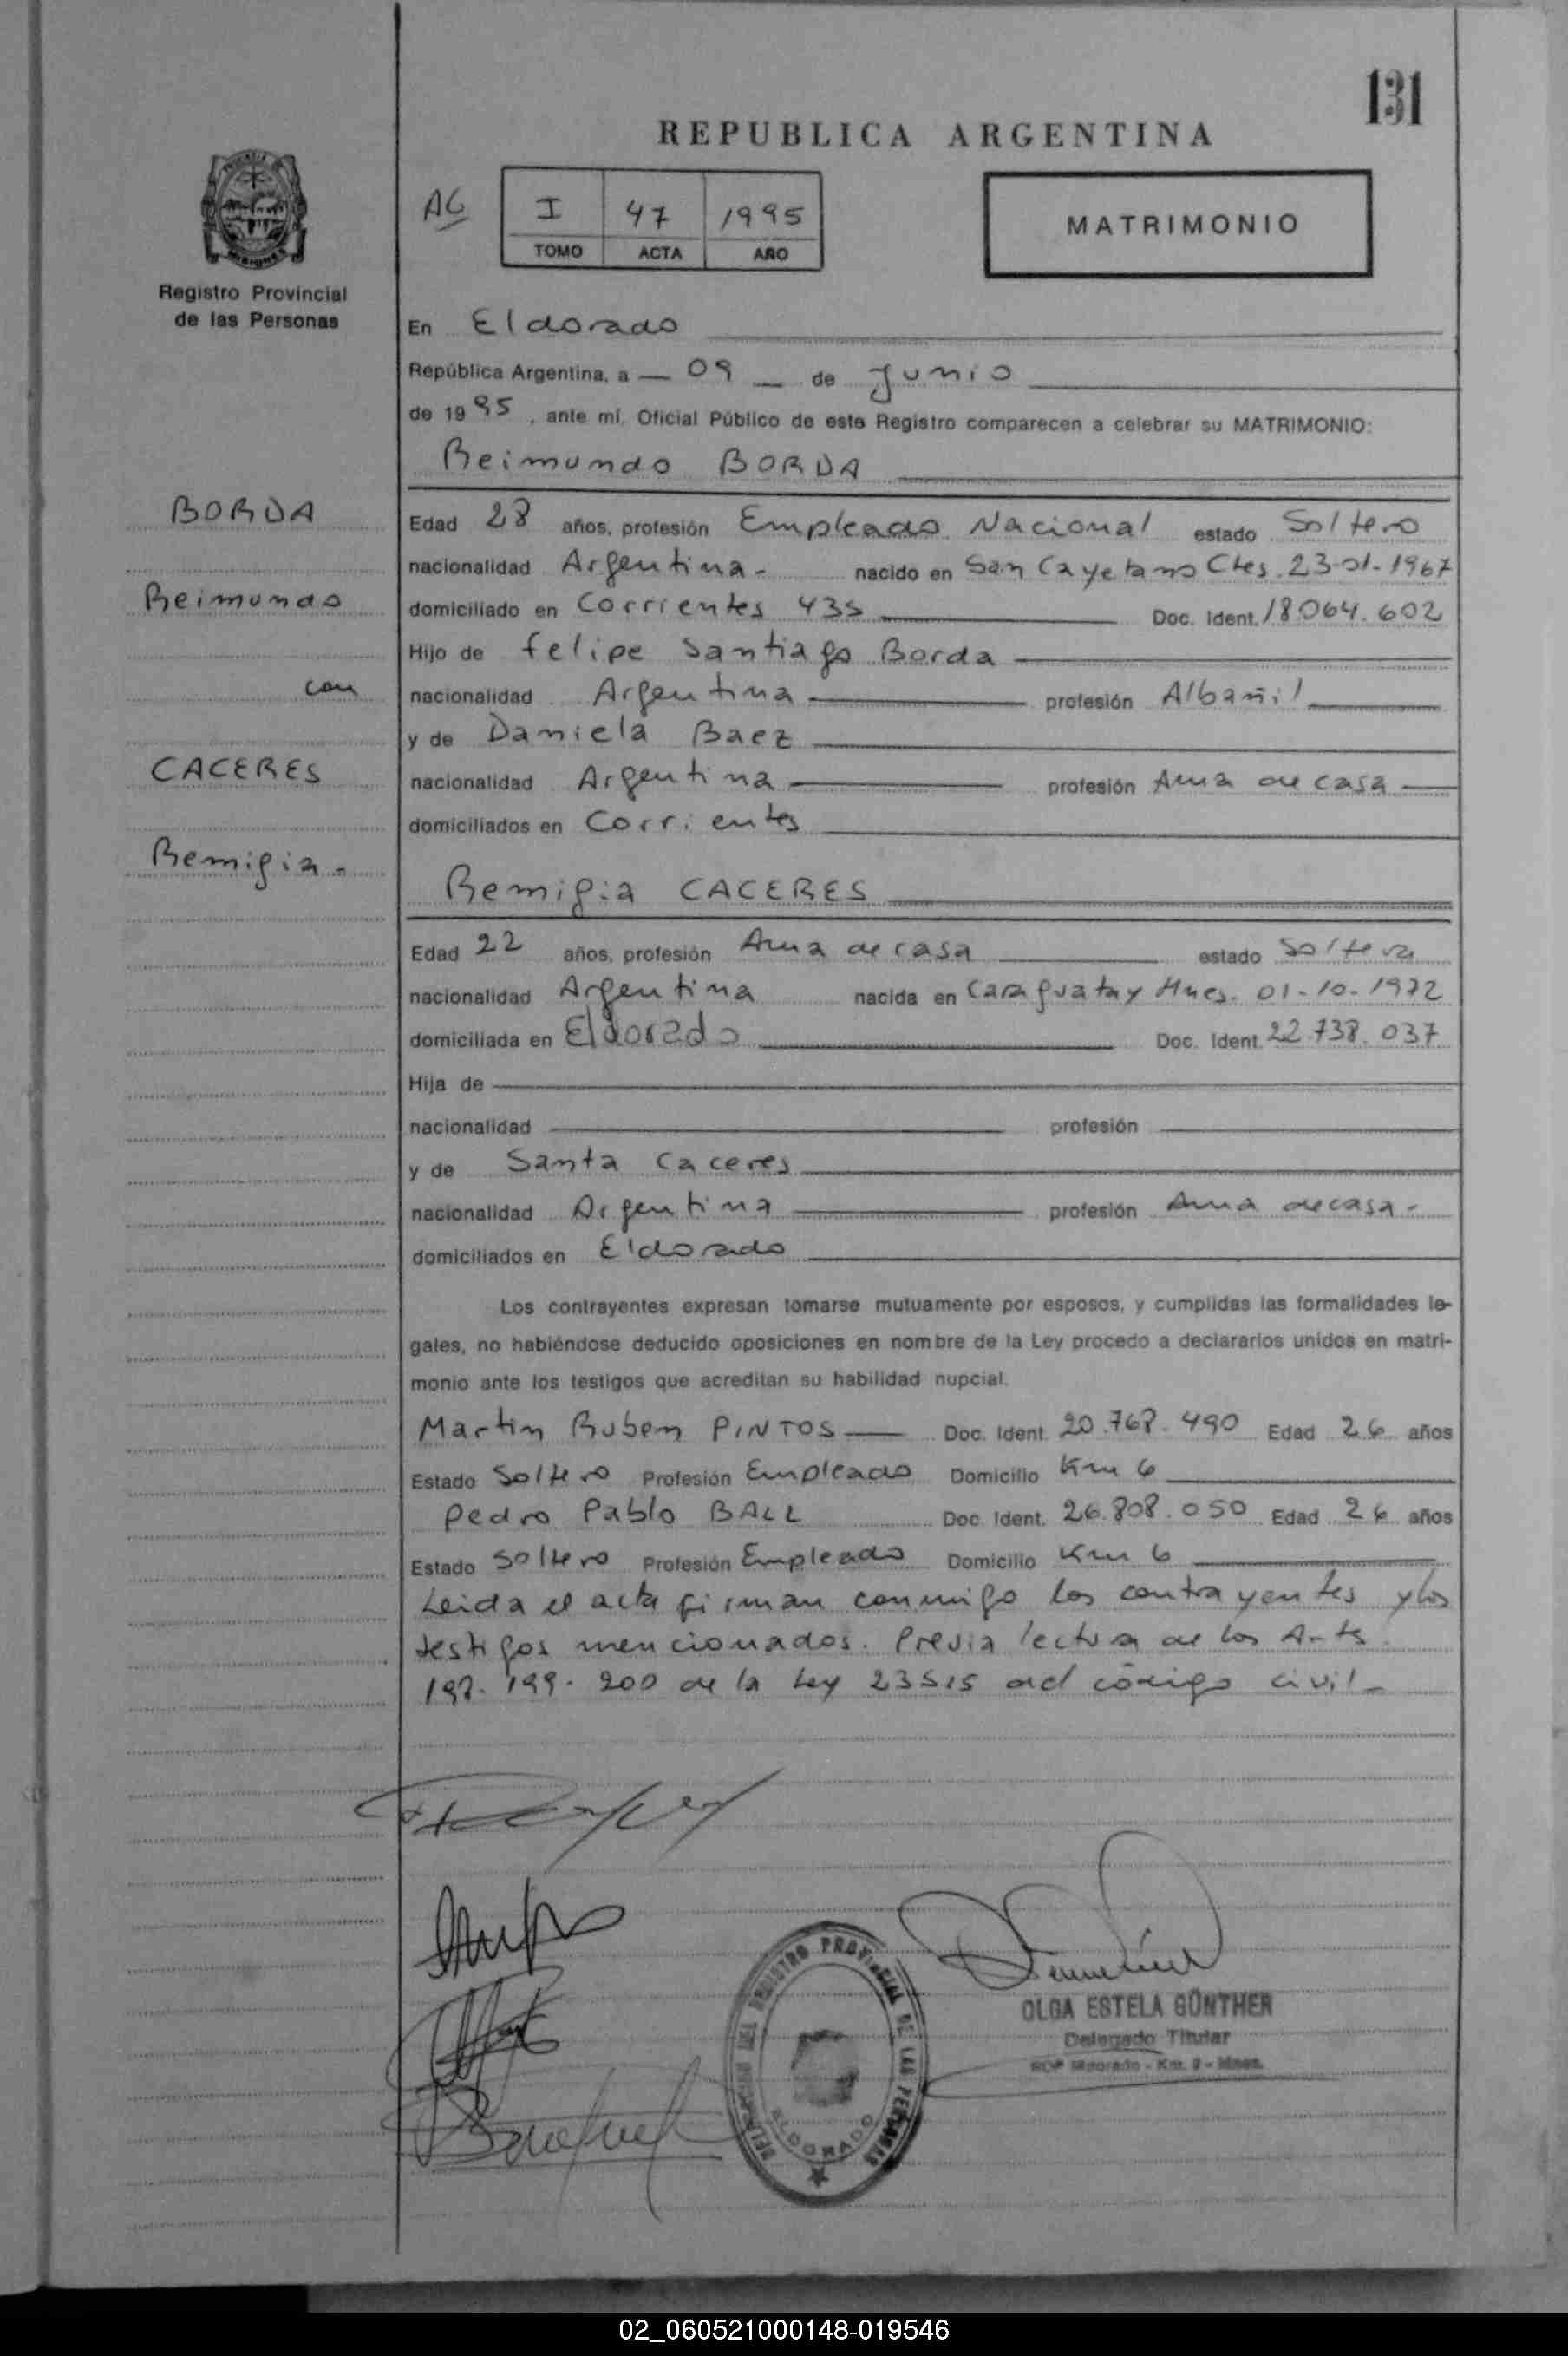 131
REPUBLICA ARGENTINA
AG
I 47 1995
TOMO ACTA AÑO
MATRIMONIO
Registro Provincial
de las Personas
En Eldorado
República Argentina, a 09 de Junio
de 1995, ante mí, Oficial Público de este Registro comparecen a celebrar su MATRIMONIO:
Reimundo BORDA
BORDA
Reimundo
con
CACERES
Remigia.
Edad 28 años, profesión Empleado Nacional estado Soltero
nacionalidad Argentina- nacido en San Cayetano Ctes. 23-01-1967
domiciliado en Corrientes 435 Doc. Ident. 18.064.602
Hijo de Felipe Santiago Borda
nacionalidad Argentina profesión Albañil
y de Daniela Baez
nacionalidad Argentina profesión Ama de casa
domiciliados en Corrientes
Remigia CACERES
Edad 22 años, profesión Ama de casa estado Soltera
nacionalidad Argentina nacida en Caraguatay Mnes. 01-10-1972
domiciliada en Eldorado Doc. Ident. 22.738.037
Hija de
nacionalidad profesión
y de Santa Caceres
nacionalidad Argentina profesión Ama de casa-
domiciliados en Eldorado
Los contrayentes expresan tomarse mutuamente por esposos, y cumplidas las formalidades le-
gales, no habiéndose deducido oposiciones en nombre de la Ley procedo a declararlos unidos en matri-
monio ante los testigos que acreditan su habilidad nupcial.
Martin Ruben PINTOS Doc. Ident. 20.768.490 Edad 26 años
Estado Soltero Profesión Empleado Domicilio Km 6
Pedro Pablo BALL Doc. Ident. 26.808.050 Edad 26 años
Estado Soltero Profesión Empleado Domicilio Km 6
Leida el acta firman conmigo los contrayentes y los
testigos mencionados. Previa lectura de los Arts.
198. 199. 200 de la Ley 23515 del código civil-
REGISTRO PROVINCIAL DE LAS PERSONAS
ELDORADO
OLGA ESTELA GÜNTHER
Delegado Titular
02_060521000148-019546